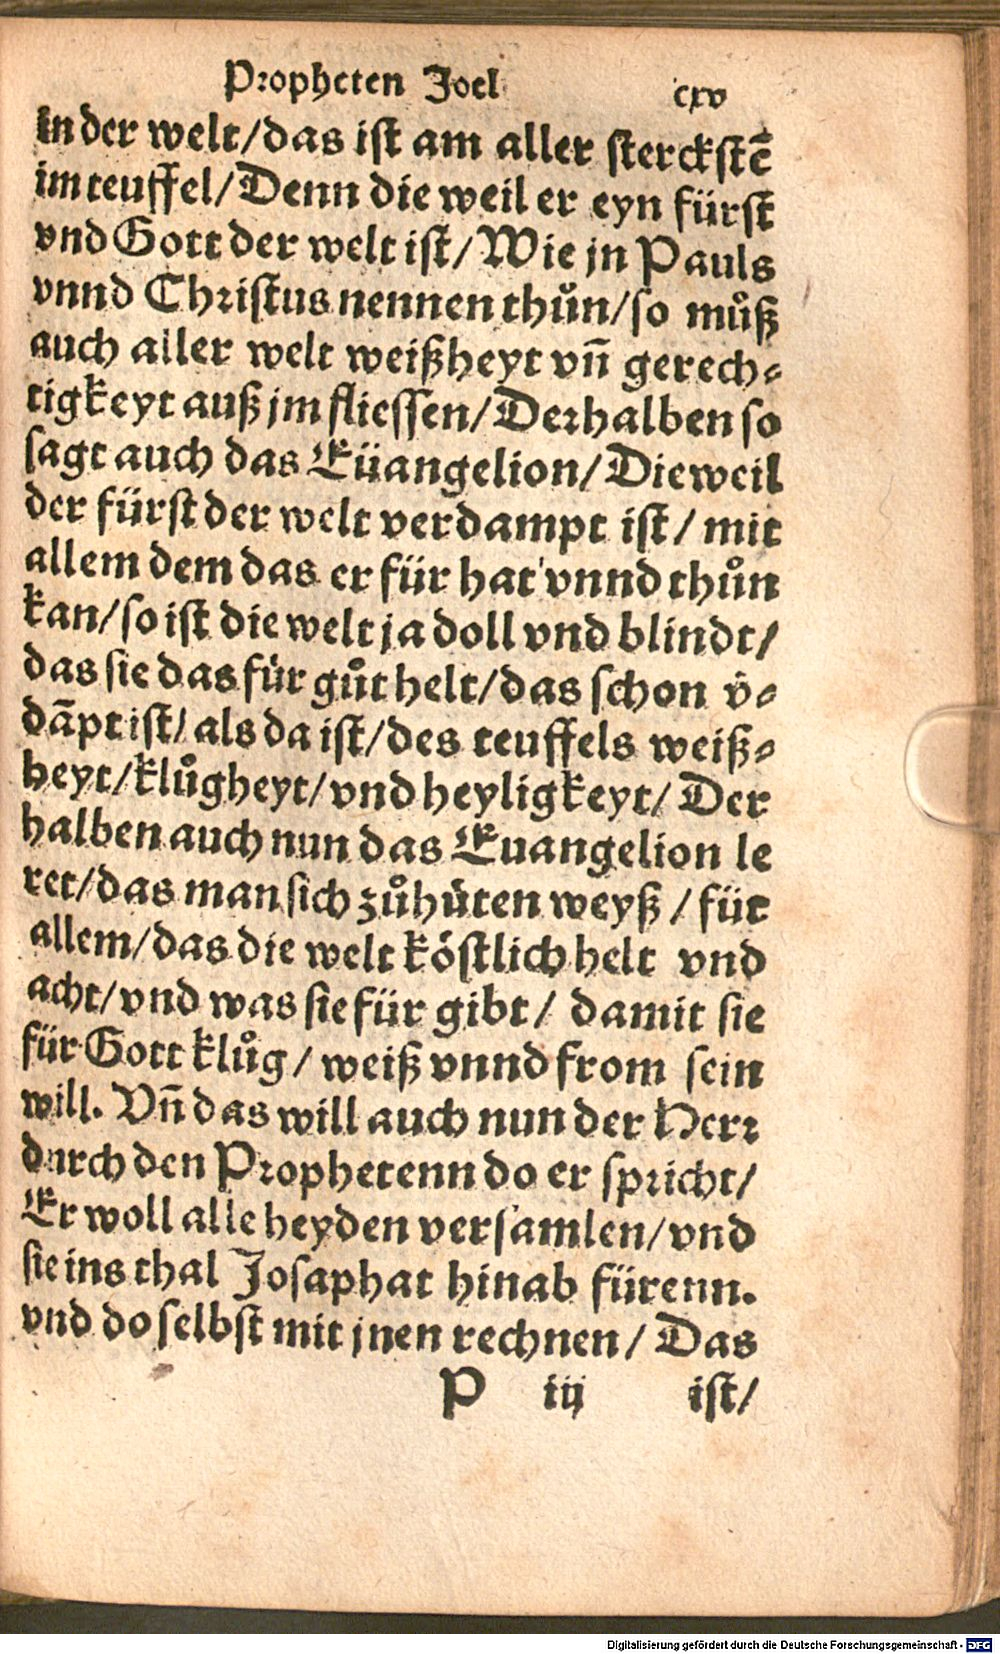 Propheten Joel cxv
in der welt/das ist am aller sterckstē
im teuffel/Denn die weil er eyn fürst
vnd Gott der welt ist/Wie jn Pauls
vnnd Christus nennen thůn/so můß
auch aller welt weißheyt vñ gerech-
tigkeyt auß jm fliessen/Derhalben so
sagt auch das Eüangelion/Dieweil
der fürst der welt verdampt ist/mit
allem dem das er für hat vnnd thůn
kan/so ist die welt ja doll vnd blindt/
das sie das für gůt helt/das schon v̄-
dāpt ist/als da ist/des teuffels weiß-
heyt/klůgheyt/vnd heyligkeyt/Der
halben auch nun das Euangelion le
ret/das man sich zůhüten weyß/für
allem/das die welt köstlich helt vnd
acht/vnd was sie für gibt/damit sie
für Gott klůg/weiß vnnd from sein
will. Vñ das will auch nun der Herr
durch den Prophetenn do er spricht/
Er woll alle heyden versamlen/vnd
sie ins thal Josaphat hinab fürenn.
vnd do selbst mit jnen rechnen/Das
P iij ist/
Digitalisierung gefördert durch die Deutsche Forschungsgemeinschaft - DFG